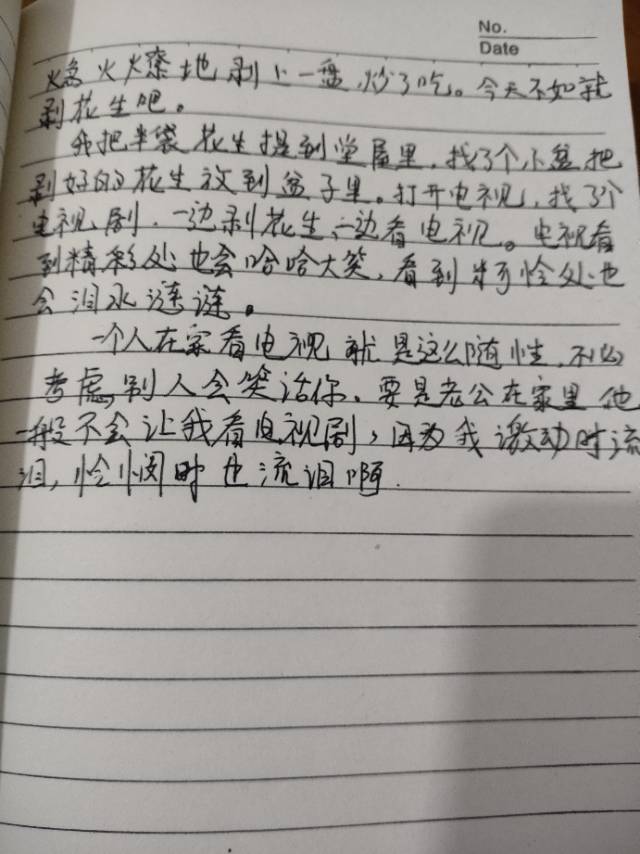 No.
Date
急火火燎地剥上一盘炒了吃。今天不如就
剥花生吧。
我把半袋花生提到堂屋里,找了个小盆,把
剥好的花生放到盆子里。打开电视,找了个
电视剧,一边剥花生,一边看电视。电视看
到精彩处也会哈哈大笑,看到可怜处也
会泪水涟涟。
一个人在家看电视就是这么随性,不必
考虑别人会笑话你。要是老公在家里他
一般不会让我看电视剧,因为我激动时流
泪,怜悯时也流泪啊.